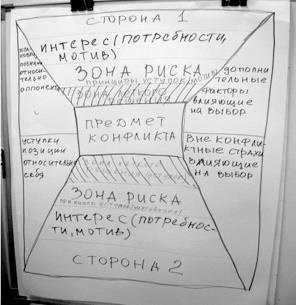 СТОРОНА 1
ИНТЕРЕС (ПОТРЕБНОСТИ,
МОТИВ)
ЗОНА РИСКА
ПОЗИЦИИ
ОТНОСИТЕЛЬНО
ОППОНЕНТА
ДОПОЛНИ
ТЕЛЬНЫЕ
ФАКТОРЫ
ВЛИЯЮЩИЕ
НА ВЫБОР
ПРЕДМЕТ
КОНФЛИКТА
УСТУПКИ
ПОЗИЦИИ
ОТНОСИТЕЛЬНО
СЕБЯ
ВНЕ КОНФЛИК
ТНЫЕ СТРАХИ
ВЛИЯЮЩИЕ
НА ВЫБОР
ЗОНА РИСКА
ИНТЕРЕС (ПОТРЕБНОС-
ТИ, МОТИВ)
СТОРОНА 2